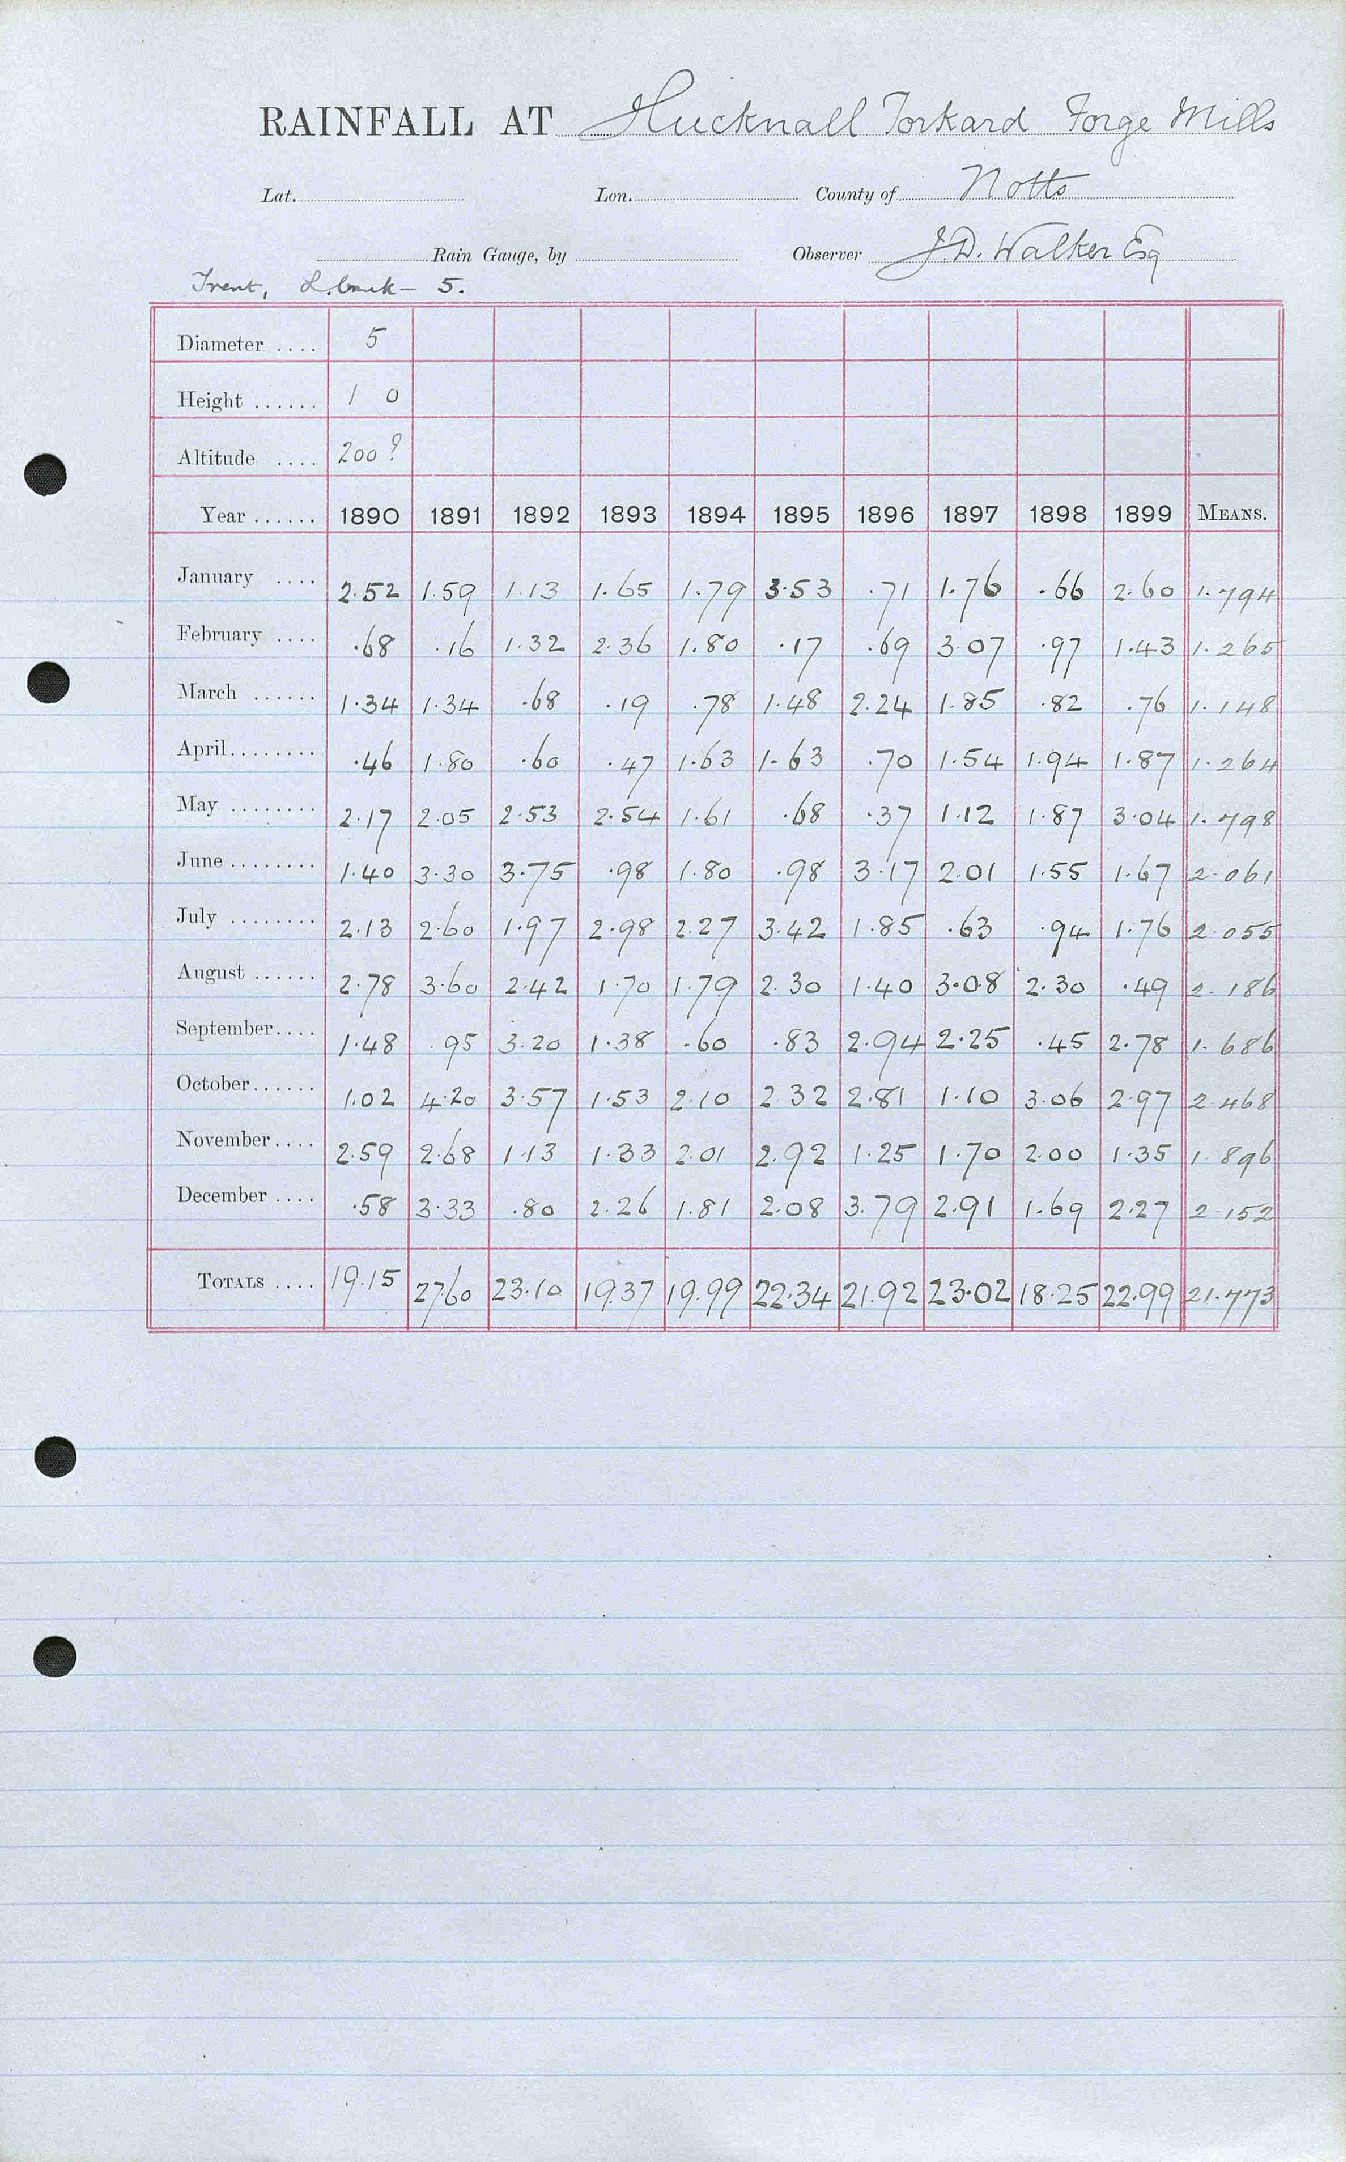 RAINFALL AT Hucknall Torkard Forge Mills
Lat. Lon. County of Notts
Rain Gauge, by Observer J.D. Walker Esq
Trent, L. bank - 5.
Diameter .... 5
Height ...... 1 0
Altitude .... 200?
Year ...... 1890 1891 1892 1893 1894 1895 1896 1897 1898 1899 MEANS.
January .... 2.52 1.59 1.13 1.65 1.79 3.53 .71 1.76 .66 2.60 1.794
February .... .68 .16 1.32 2.36 1.80 .17 .69 3.07 .97 1.43 1.265
March ...... 1.34 1.34 .68 .19 .78 1.48 2.24 1.85 .82 .76 1.148
April........ .46 1.80 .60 .47 1.63 1.63 .70 1.54 1.94 1.87 1.264
May ........ 2.17 2.05 2.53 2.54 1.61 .68 .37 1.12 1.87 3.04 1.798
June ........ 1.40 3.30 3.75 .98 1.80 .98 3.17 2.01 1.55 1.67 2.061
July ........ 2.13 2.60 1.97 2.98 2.27 3.42 1.85 .63 .94 1.76 2.055
August ...... 2.78 3.60 2.42 1.70 1.79 2.30 1.40 3.08 2.30 .49 2.186
September.... 1.48 .95 3.20 1.38 .60 .83 2.94 2.25 .45 2.78 1.686
October...... 1.02 4.20 3.57 1.53 2.10 2.32 2.81 1.10 3.06 2.97 2.468
November.... 2.59 2.68 1.13 1.33 2.01 2.92 1.25 1.70 2.00 1.35 1.896
December .... .58 3.33 .80 2.26 1.81 2.08 3.79 2.91 1.69 2.27 2.152
TOTALS .... 19.15 27.60 23.10 19.37 19.99 22.34 21.92 23.02 18.25 22.99 21.773